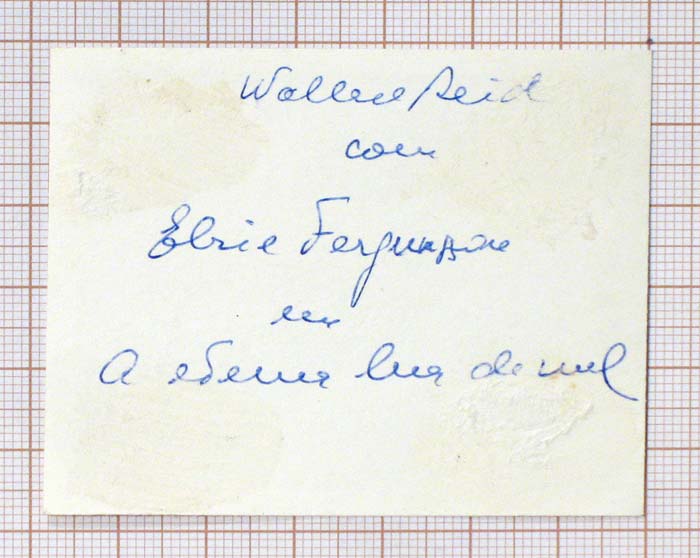 Wallace Reid
com
Elsie Ferguson
em
A eterna lua de mel